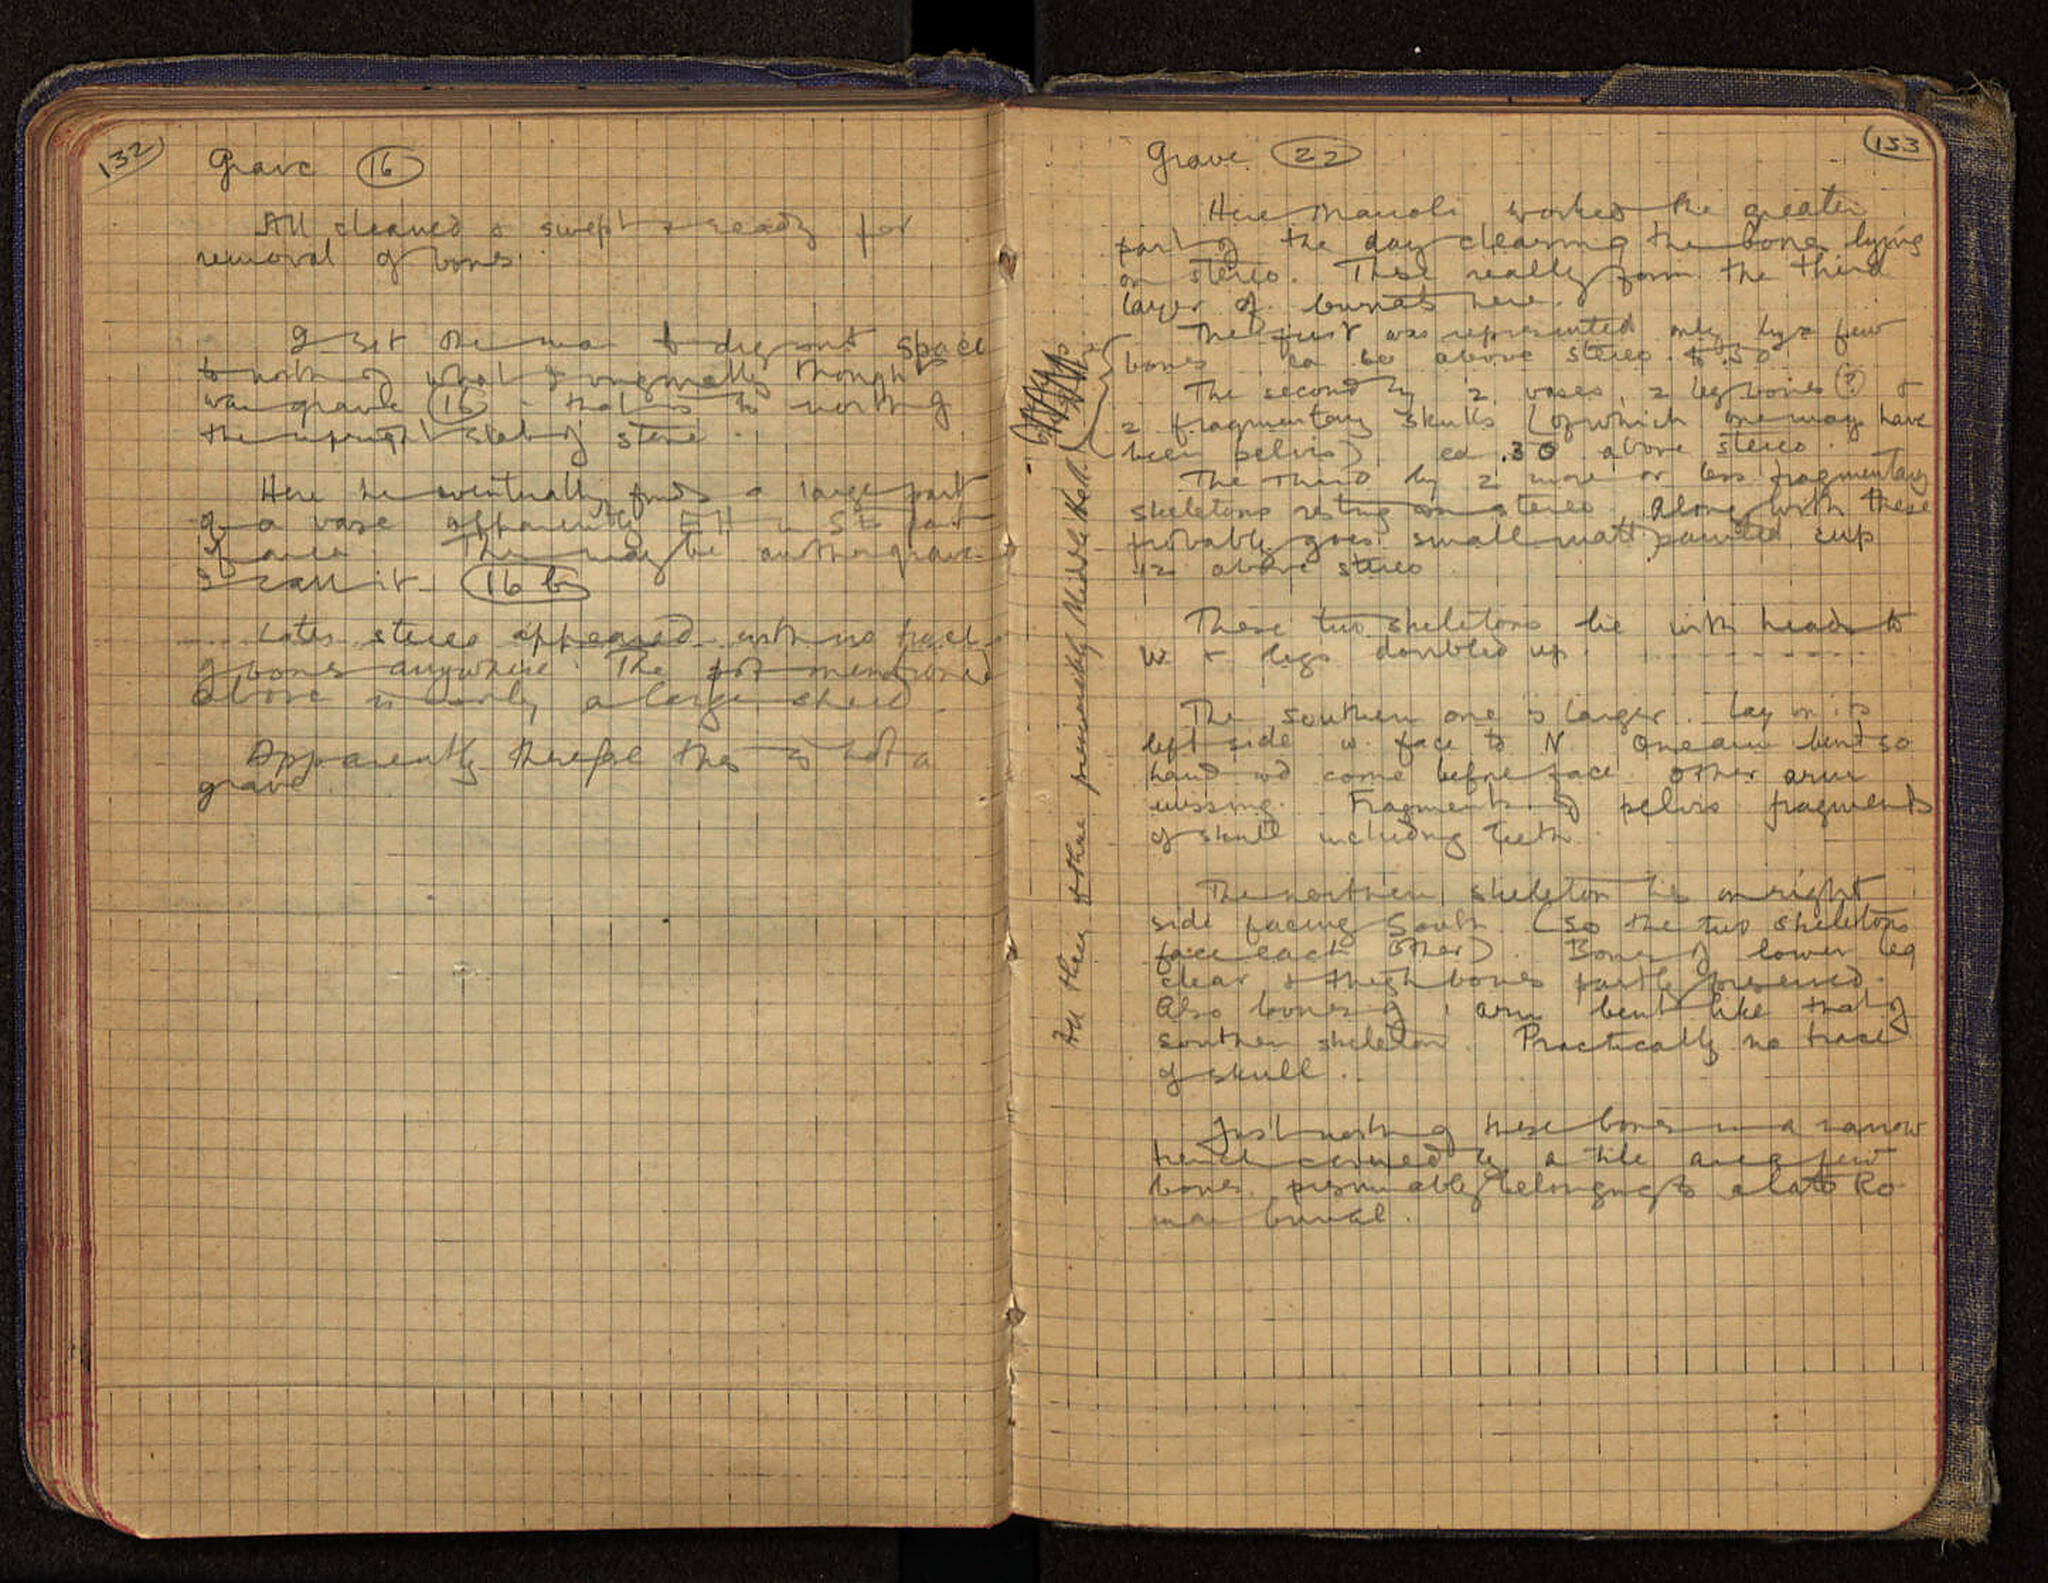 132
Grave 16
All cleaned & swept & ready for
removal of bones
I set the man to dig out space
to north of what I originally thought
was grave 16 - that is to north of
the upright slab of stone.
Here he eventually finds a large part
of a vase apparently EH in SE part
of area. There may be another grave.
I call it 16 b
Later stereo appeared with no trace
of bones anywhere. The pot mentioned
above is merely a large sherd.
Apparently therefore this is not a
grave
133
Grave 22
Here Manoli worked the greater
part of the day clearing the bones lying
on stereo. These really form the third
layer of burials here.
The first was represented only by a few
bones ca 60 above stereo to .50
The second by 2 vases, 2 leg bones (?) &
2 fragmentary skulls (of which one may have
been pelvis) ca .30 above stereo.
The third by 2 more or less fragmentary
skeletons resting on stereo. Along with these
probably goes small matt painted cup
.12 above stereo
These two skeletons lie with heads to
W & legs doubled up.
The southern one is larger. Lay on its
left side w. face to N. One arm bent so
hand wd come before face. Other arm
missing. Fragments of pelvis fragments
of skull including teeth.
The northern skeleton lies on right
side facing South (so the two skeletons
face each other). Bones of lower leg
clear & thigh bones partly preserved.
Also bones of 1 arm bent like that of
southern skeleton. Practically no trace
of skull.
Just north of these bones in a narrow
trench covered by a tile are a few
bones presumably belonging to a late Ro
man burial.
All three of these presumably Middle Hell.